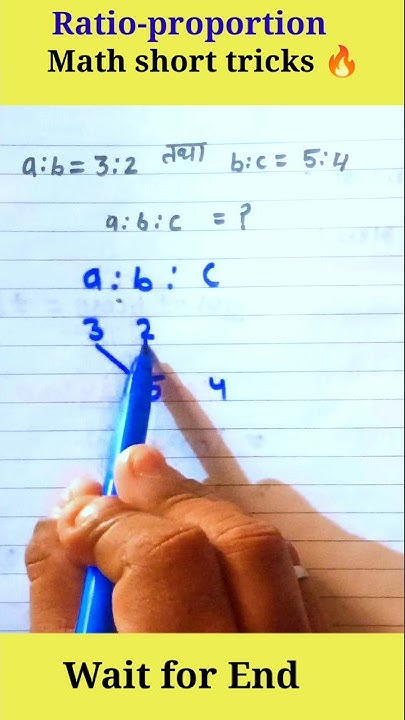 Ratio-proportion
Math short tricks 🔥
a:b = 3:2 तथा b:c = 5:4
a:b:c = ?
a : b : c
3 2
5 4
Wait for End